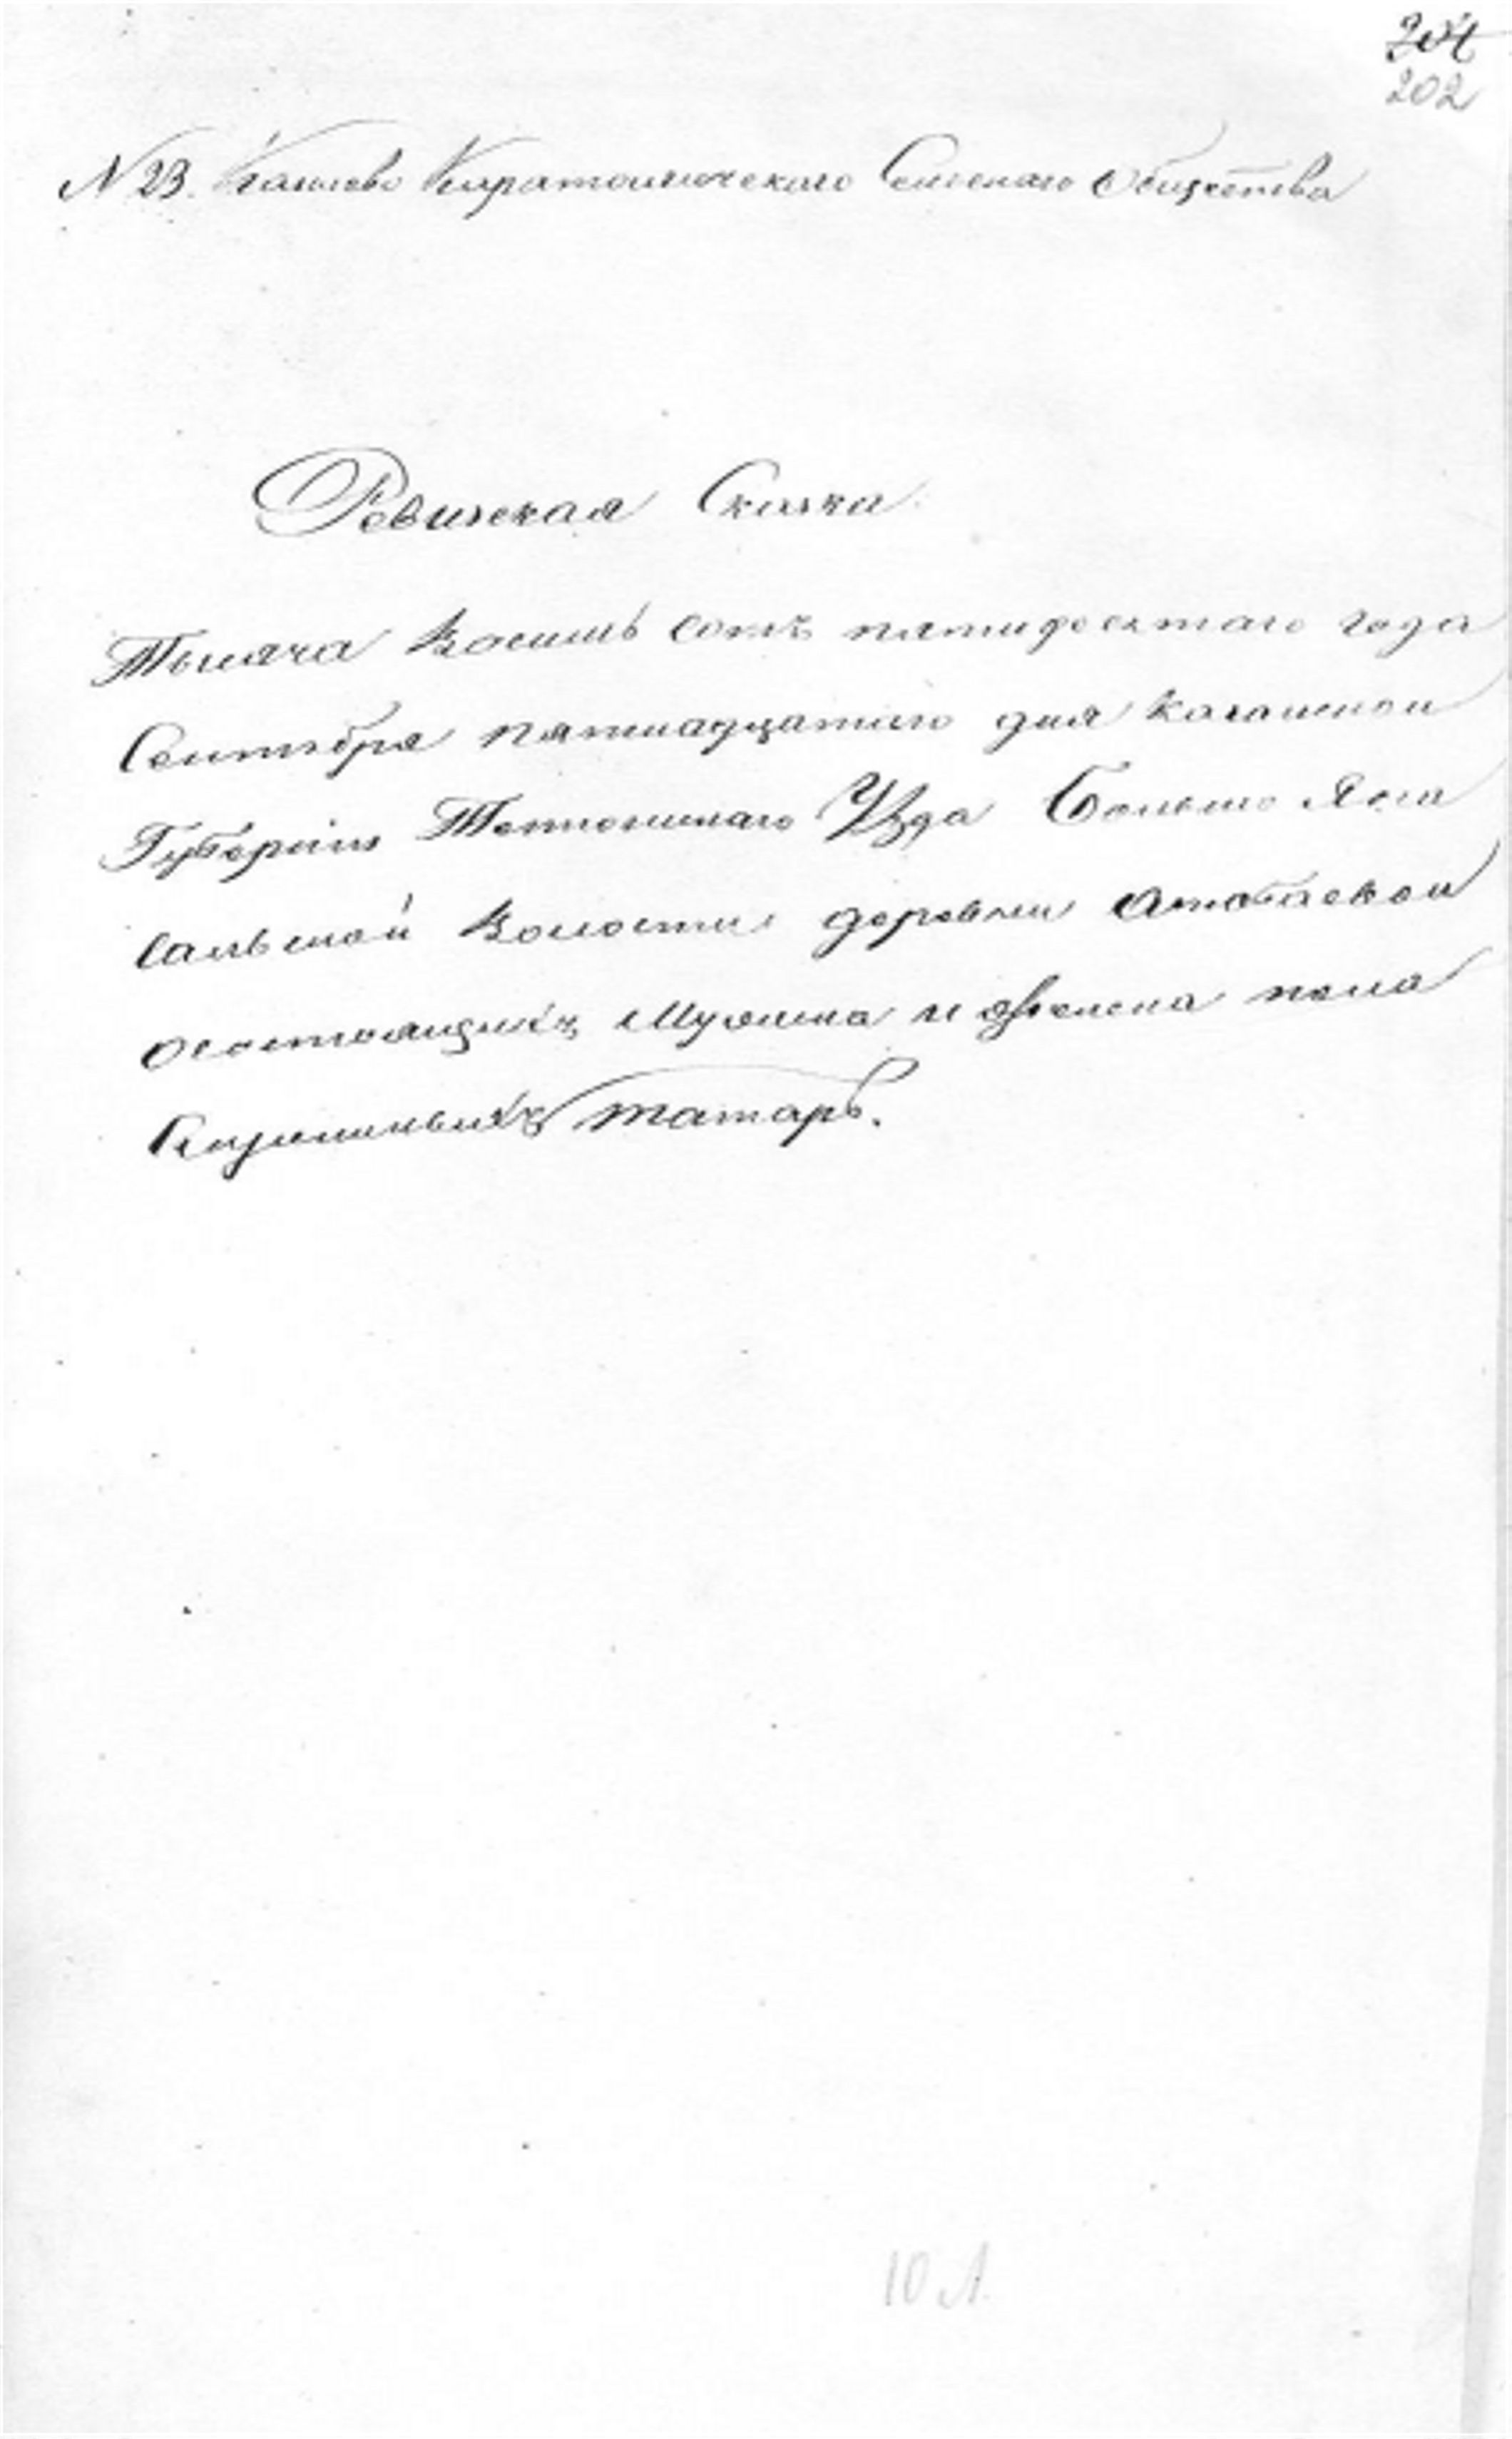 204
202
N 23. Каишево Киратоинческаго Сельскаго Общества
Ревизская Сказка
Тысяча восемь сотъ пятидесятаго года
Сентября пятнадцатаго дня казанской
Губернiи Тетюшинаго Уѣзда Больше Яса
сальской волости деревни Атабаевой
о состоящихъ Мужска и женска пола
Крещеныхъ татаръ.
10 л